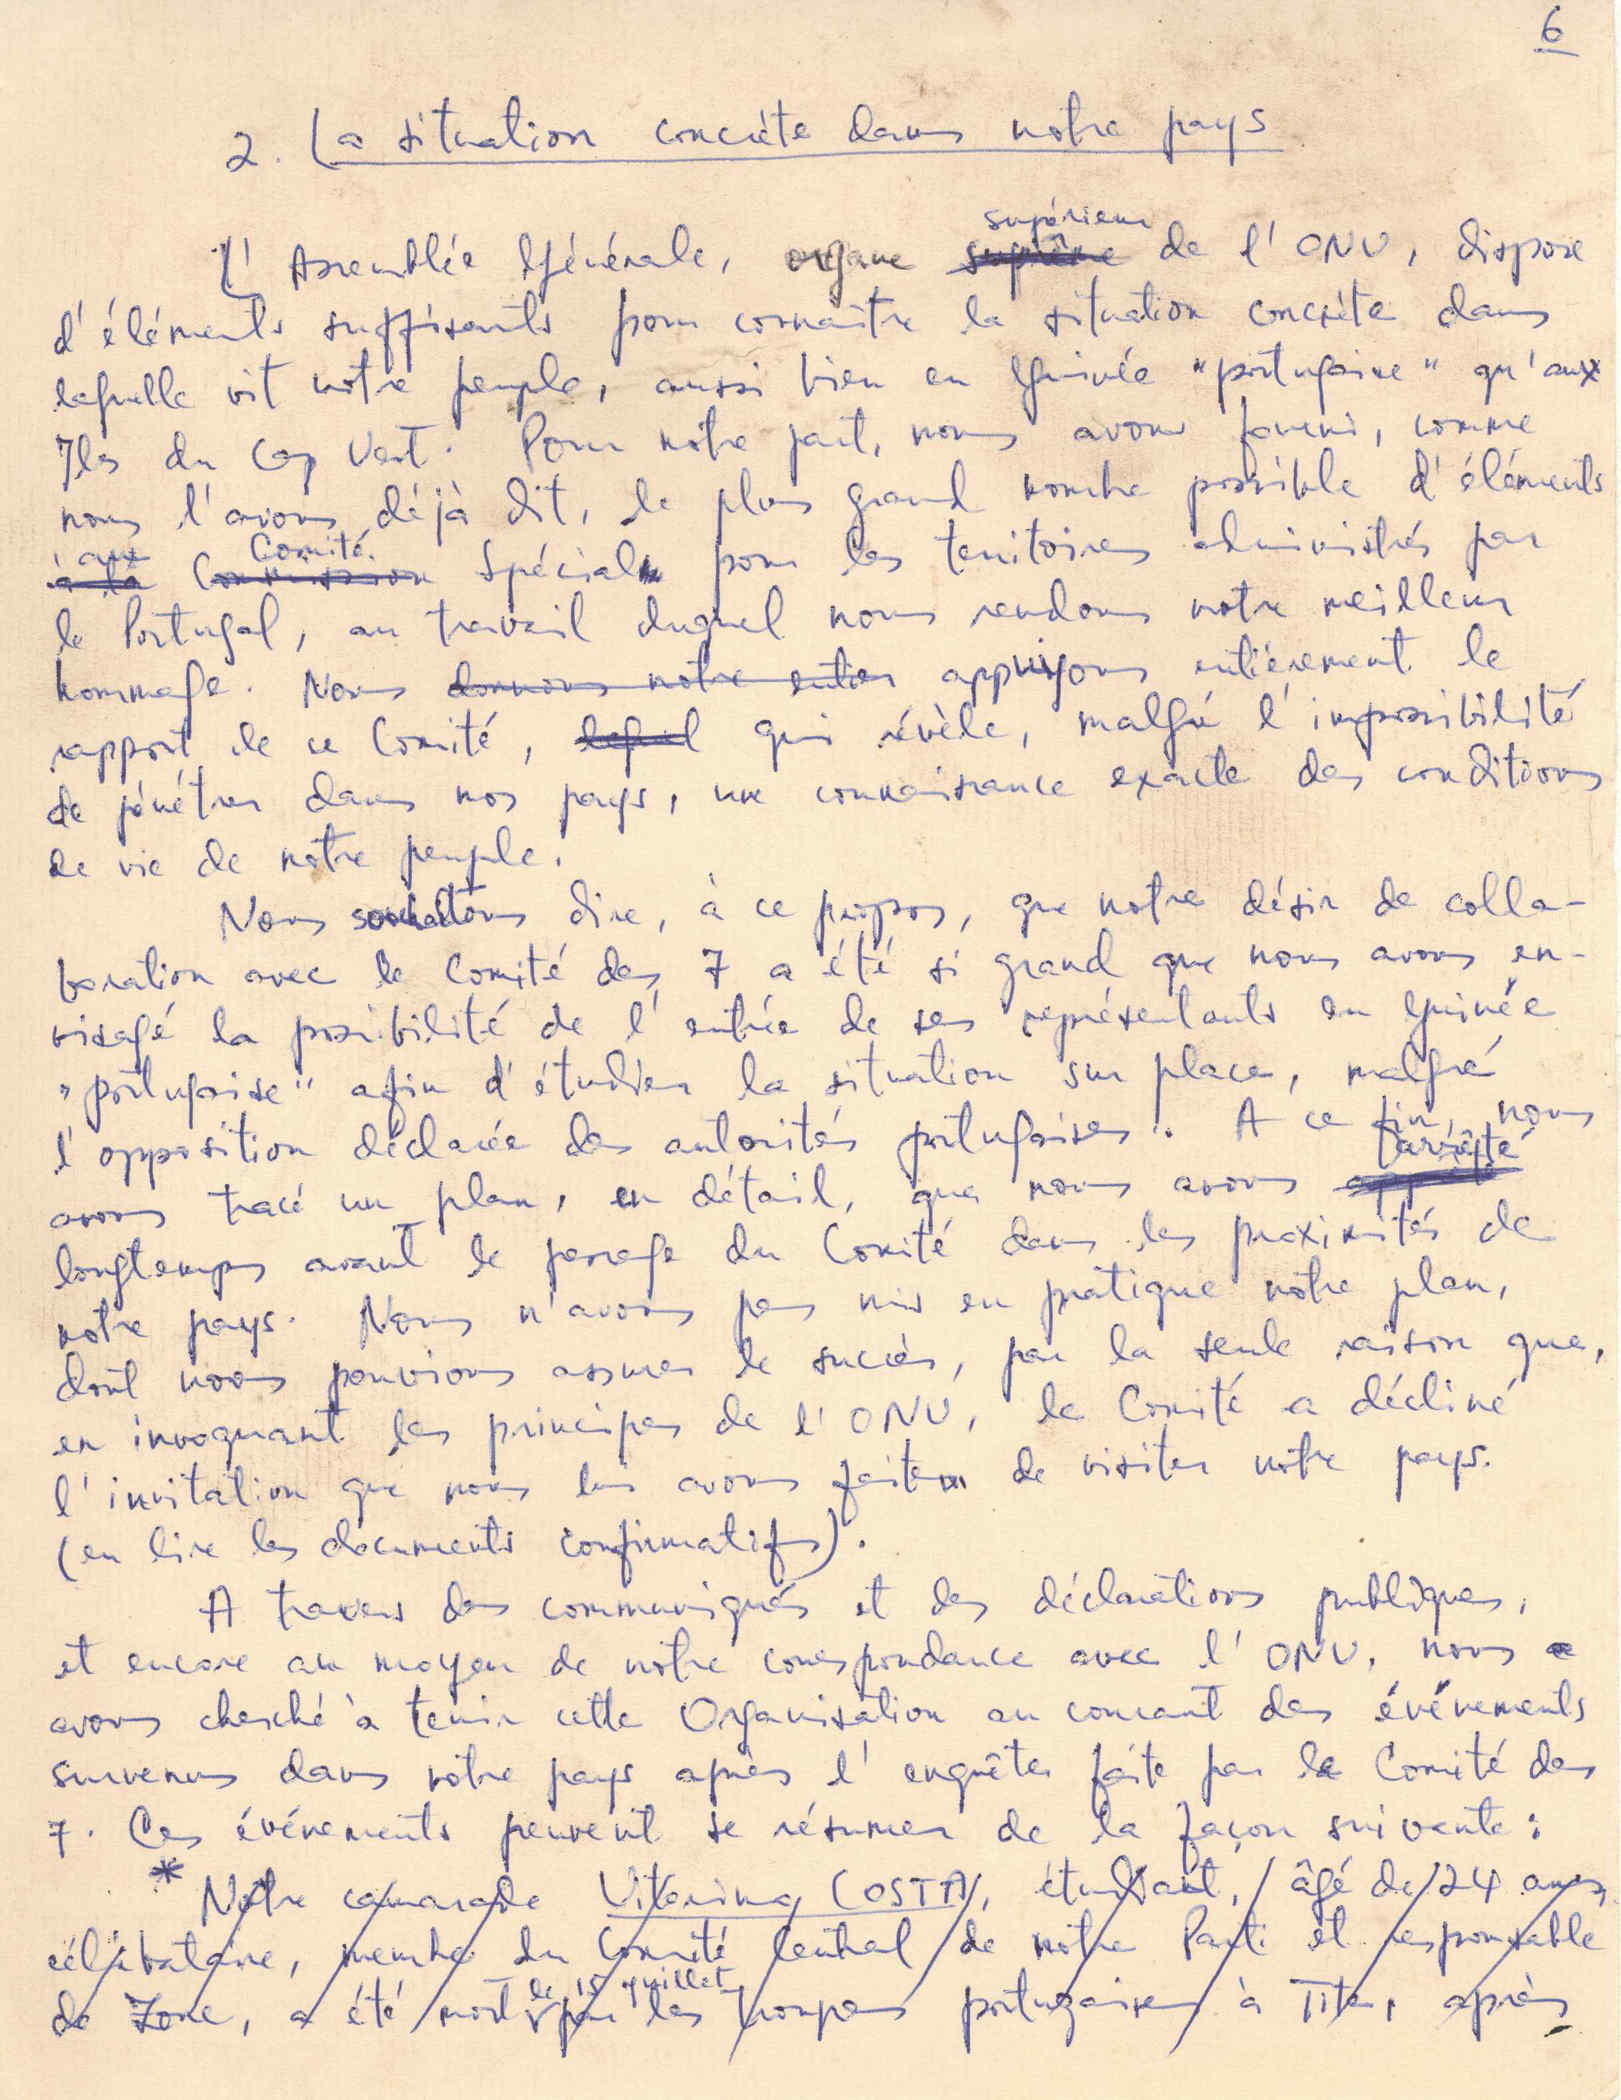 6
2. La situation concrète dans notre pays
supérieur
L'Assemblée Générale, organe suprême de l'ONU, dispose
d'éléments suffisants pour connaître la situation concrète dans
laquelle vit notre peuple, aussi bien en Guinée "portugaise" qu'aux
Iles du Cap Vert. Pour notre part, nous avons fourni, comme
nous l'avons déjà dit, le plus grand nombre possible d'éléments
au Comité
à la Commission Spécial pour les territoires administrés par
le Portugal, au travail duquel nous rendons notre meilleur
hommage. Nous donnons notre entier appuyons entièrement le
rapport de ce Comité, lequel qui révèle, malgré l'impossibilité
de pénétrer dans nos pays, une connaissance exacte des conditions
de vie de notre peuple.
Nous souhaitons dire, à ce propos, que notre désir de colla-
boration avec le Comité des 7 a été si grand que nous avons en-
visagé la possibilité de l'entrée de ses représentants en Guinée
"portugaise" afin d'étudier la situation sur place, malgré
l'opposition déclarée des autorités portugaises. A ce fin, nous
arrêté
avons tracé un plan, en détail, que nous avons
longtemps avant le passage du Comité dans les proximités de
notre pays. Nous n'avons pas mis en pratique notre plan,
dont nous pouvions assurer le succès, par la seule raison que,
en invoquant les principes de l'ONU, le Comité a décliné
l'invitation que nous lui avons faite de visiter notre pays.
(en lire les documents confirmatifs).
A travers des communiqués et des déclarations publiques,
et encore au moyen de notre correspondance avec l'ONU, nous
avons cherché à tenir cette Organisation au courant des événements
survenus dans notre pays après l'enquête faite par le Comité des
7. Ces événements peuvent se résumer de la façon suivante:
* Notre camarade Vitorino COSTA, étudiant, âgé de 24 ans,
célibataire, membre du Comité Central de notre Parti et responsable
le 15 juillet
de Zone, a été mort par les troupes portugaises à Tite, après